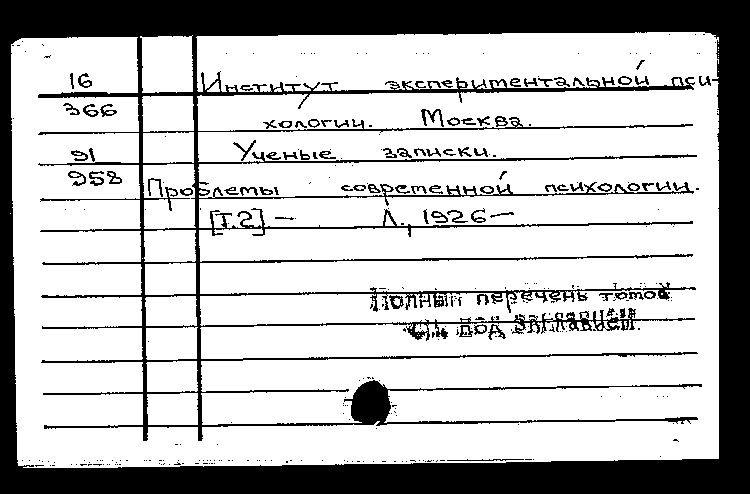 16 Институт экспериментальной пси-
366
хологии. Москва.
91 Ученые записки.
958 Проблемы современной психологии.
[т.2] — Л., 1926 —
Полный перечень томов
см. под заглавием.